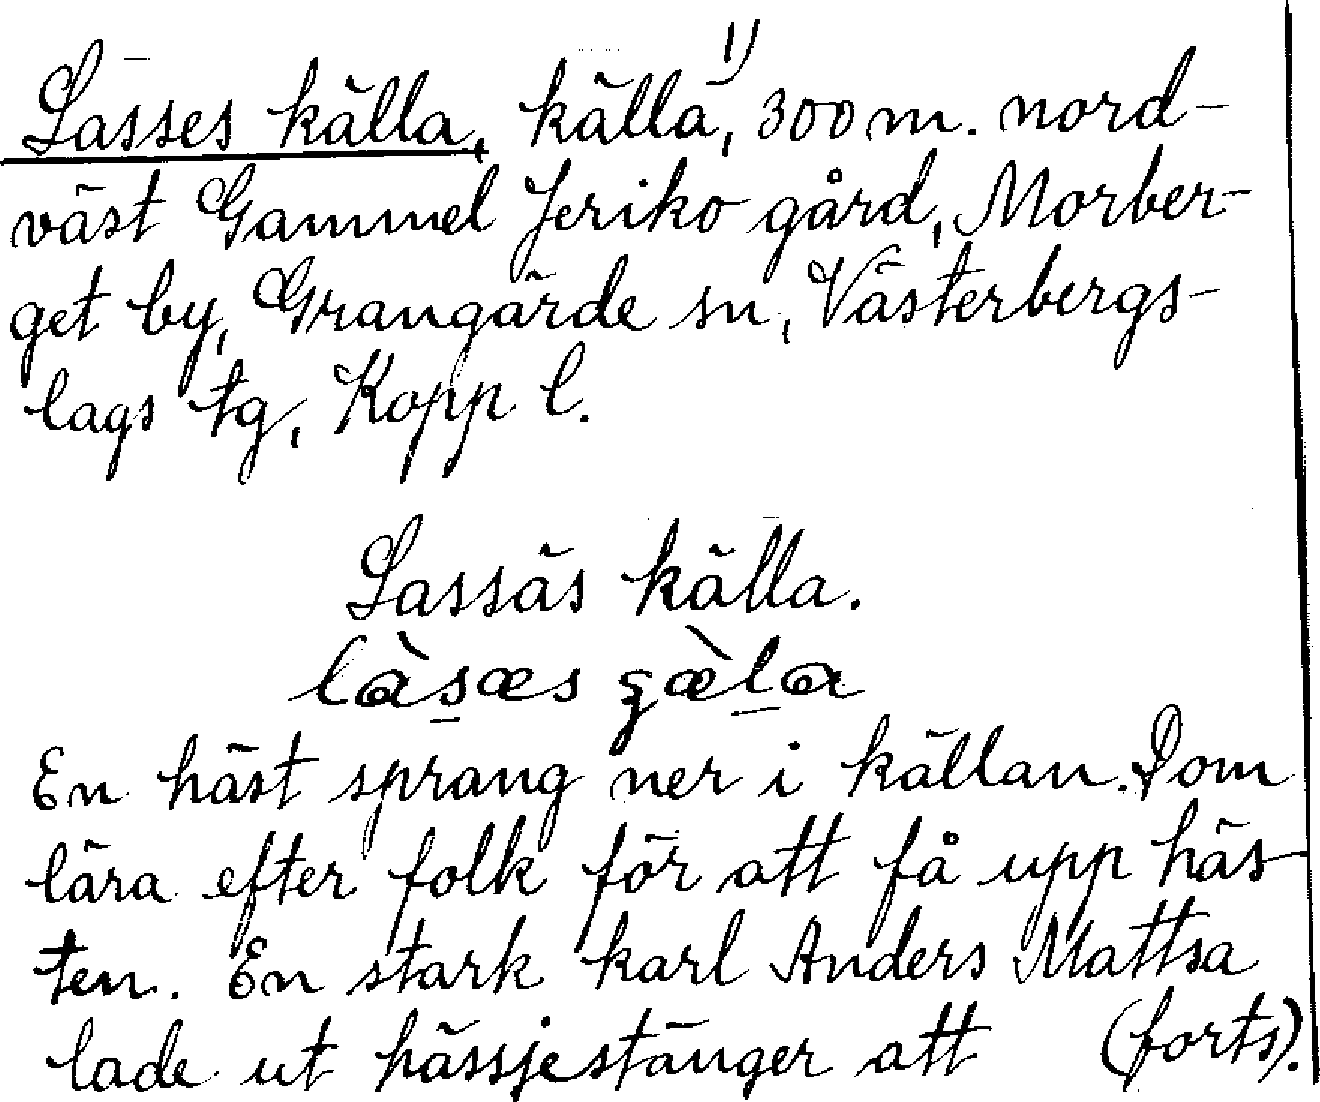 Lasses källa, källa, 1) 300 m. nord-
väst Gammel Jeriko gård, Morber-
get by, Grangärde sn, Västerbergs-
lags tg, Kopp l.
Lassäs källa.
làsæs ɕæ̀la
En häst sprang ner i källan. Dom
lära efter folk för att få upp häs-
ten. En stark karl Anders Mattsa
lade ut hässjestänger att (forts).